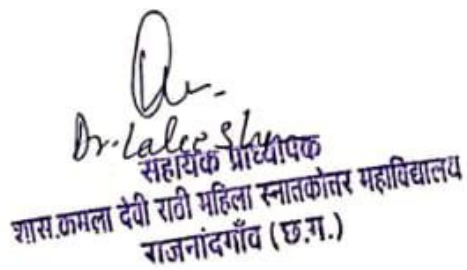 Dr.
सहायक प्राध्यापक
शास.कमला देवी राठी महिला स्नातकोत्तर महाविद्यालय
राजनांदगाँव (छ.ग.)